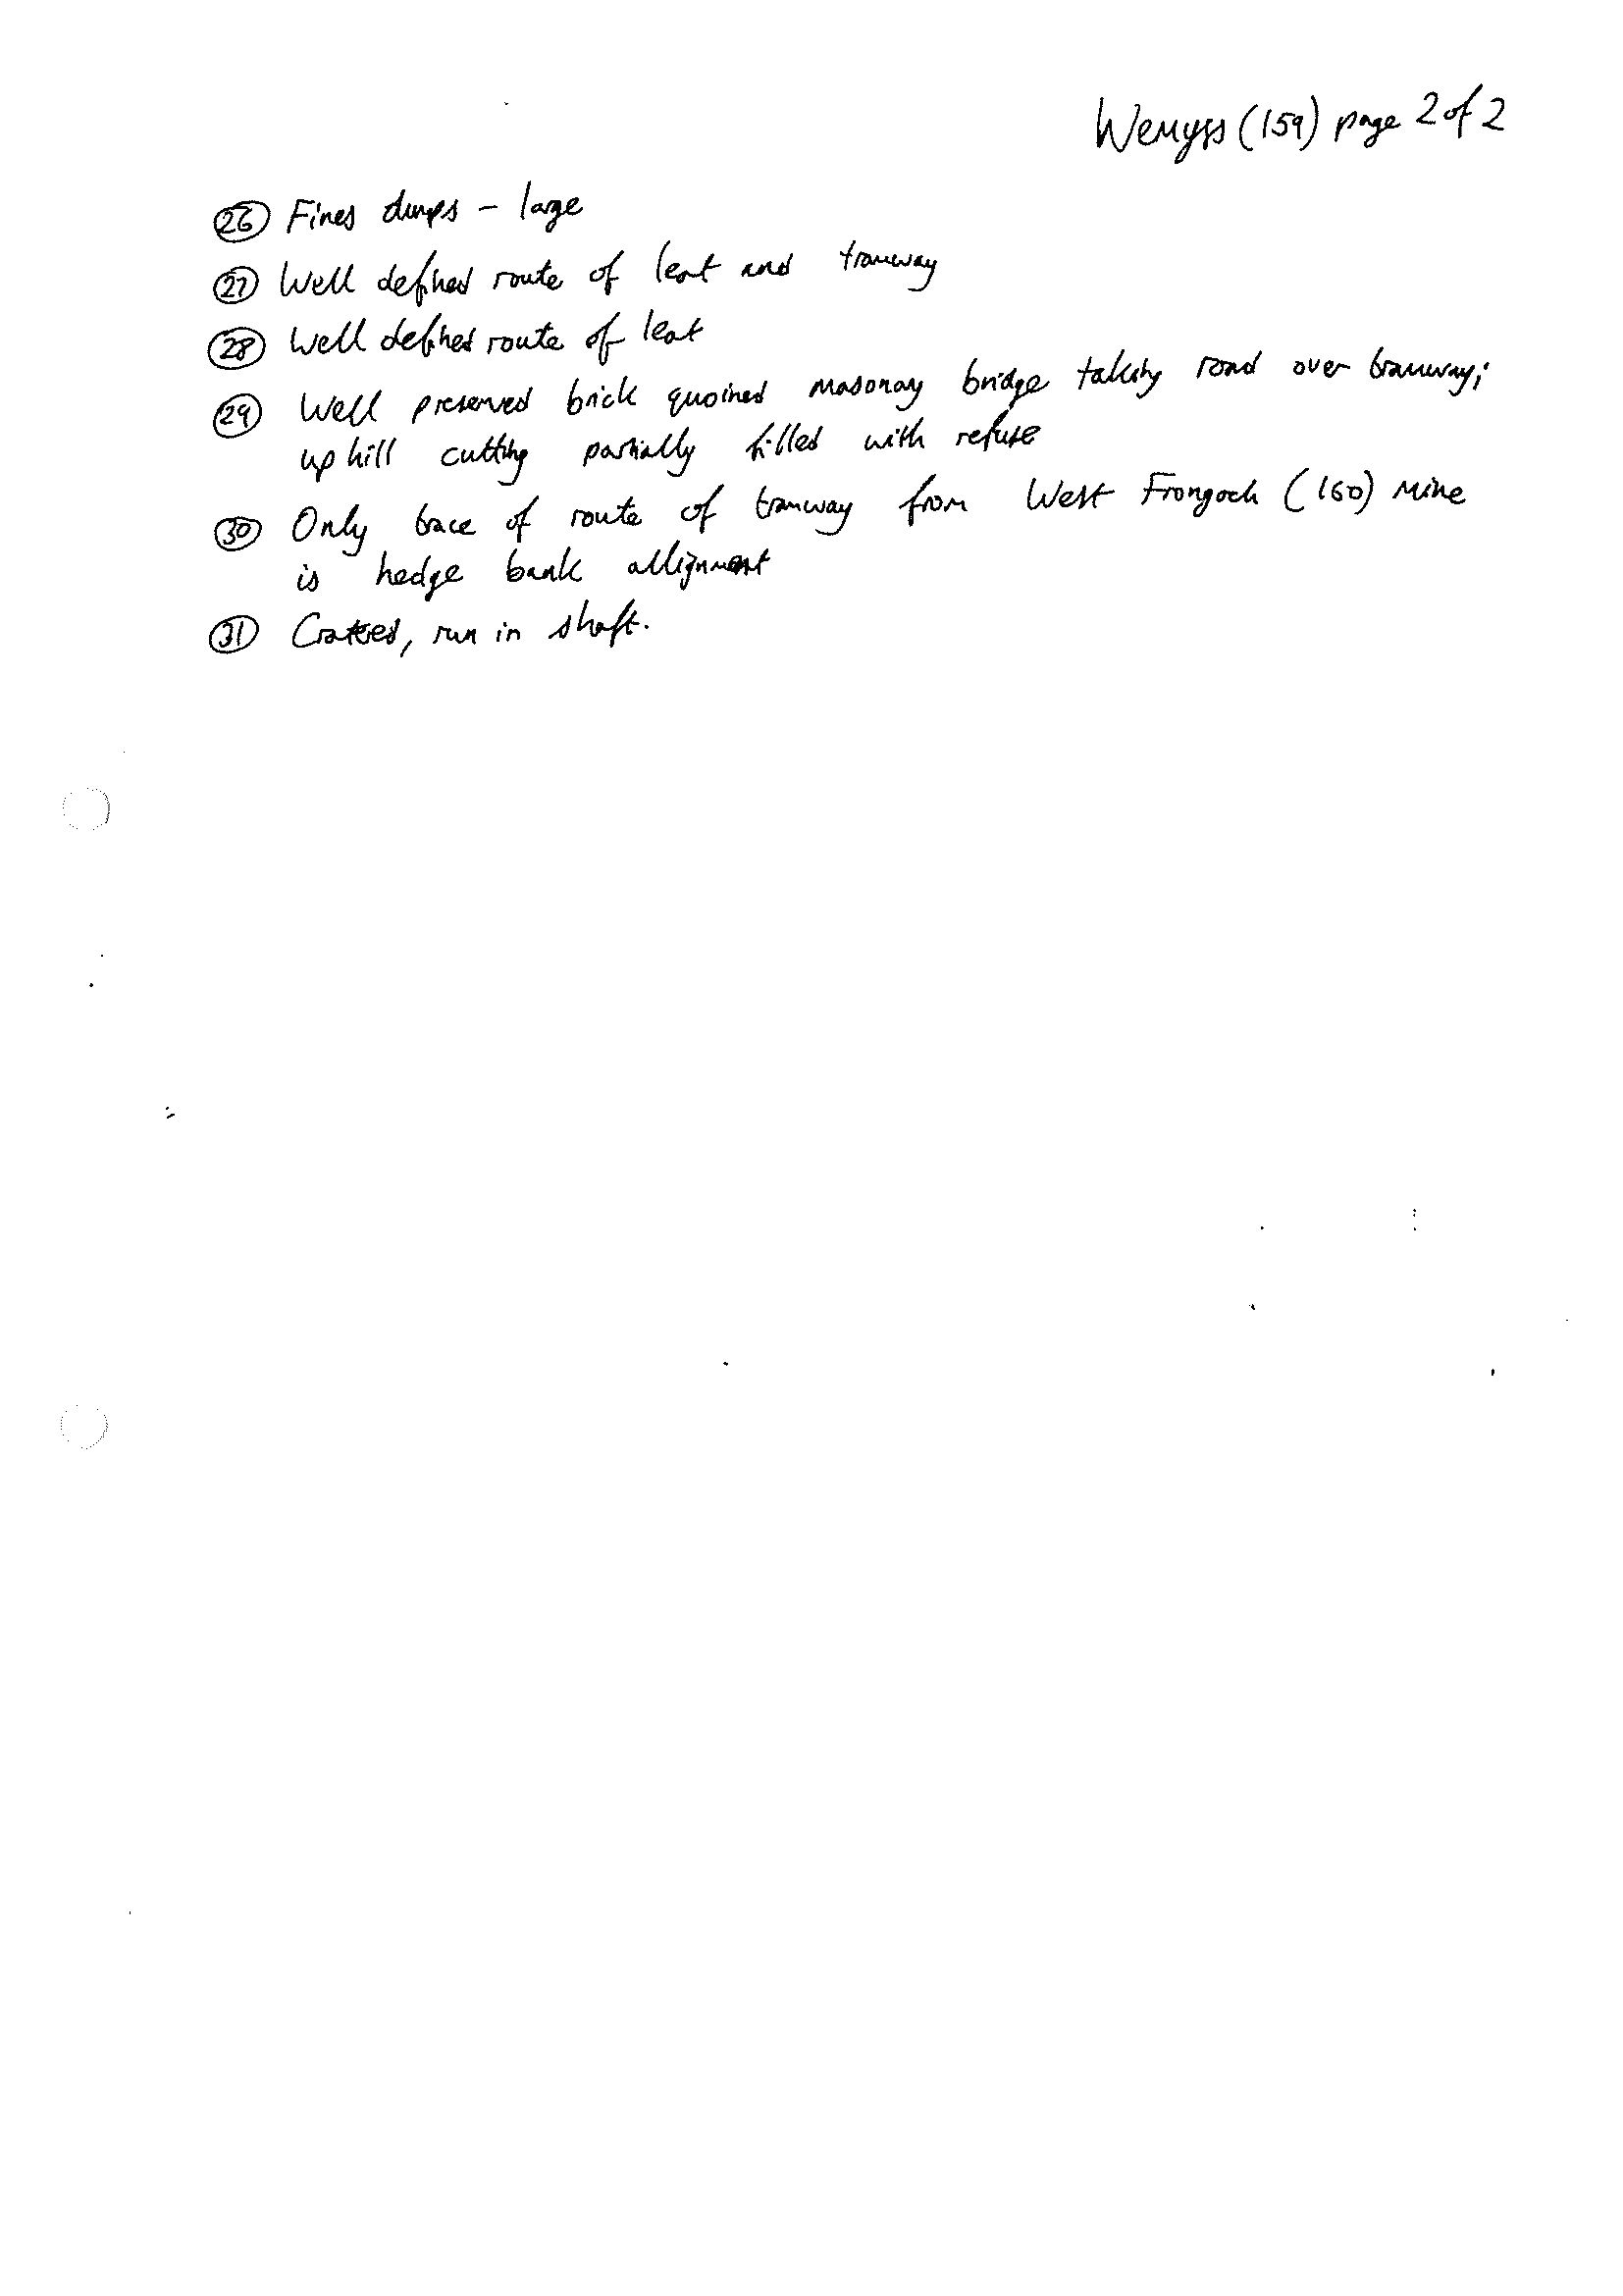 Wemyss (159) page 2 of 2
26 Fines dumps - large
27 Well defined route of leat and tramway
28 Well defined route of leat
29 Well preserved brick quoined masonay bridge taking road over tramway;
up hill cutting partially filled with refuse
30 Only trace of route of tramway from West Frongoch (160) Mine
is hedge bank allignment
31 Cratered, run in shaft.